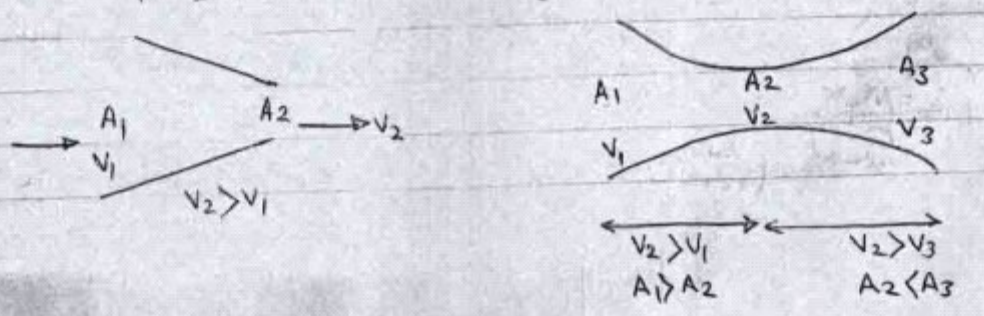 A1
V1
A2
V2
V2>V1
A1
A2
A3
V1
V2
V3
V2>V1
V2>V3
A1>A2
A2<A3